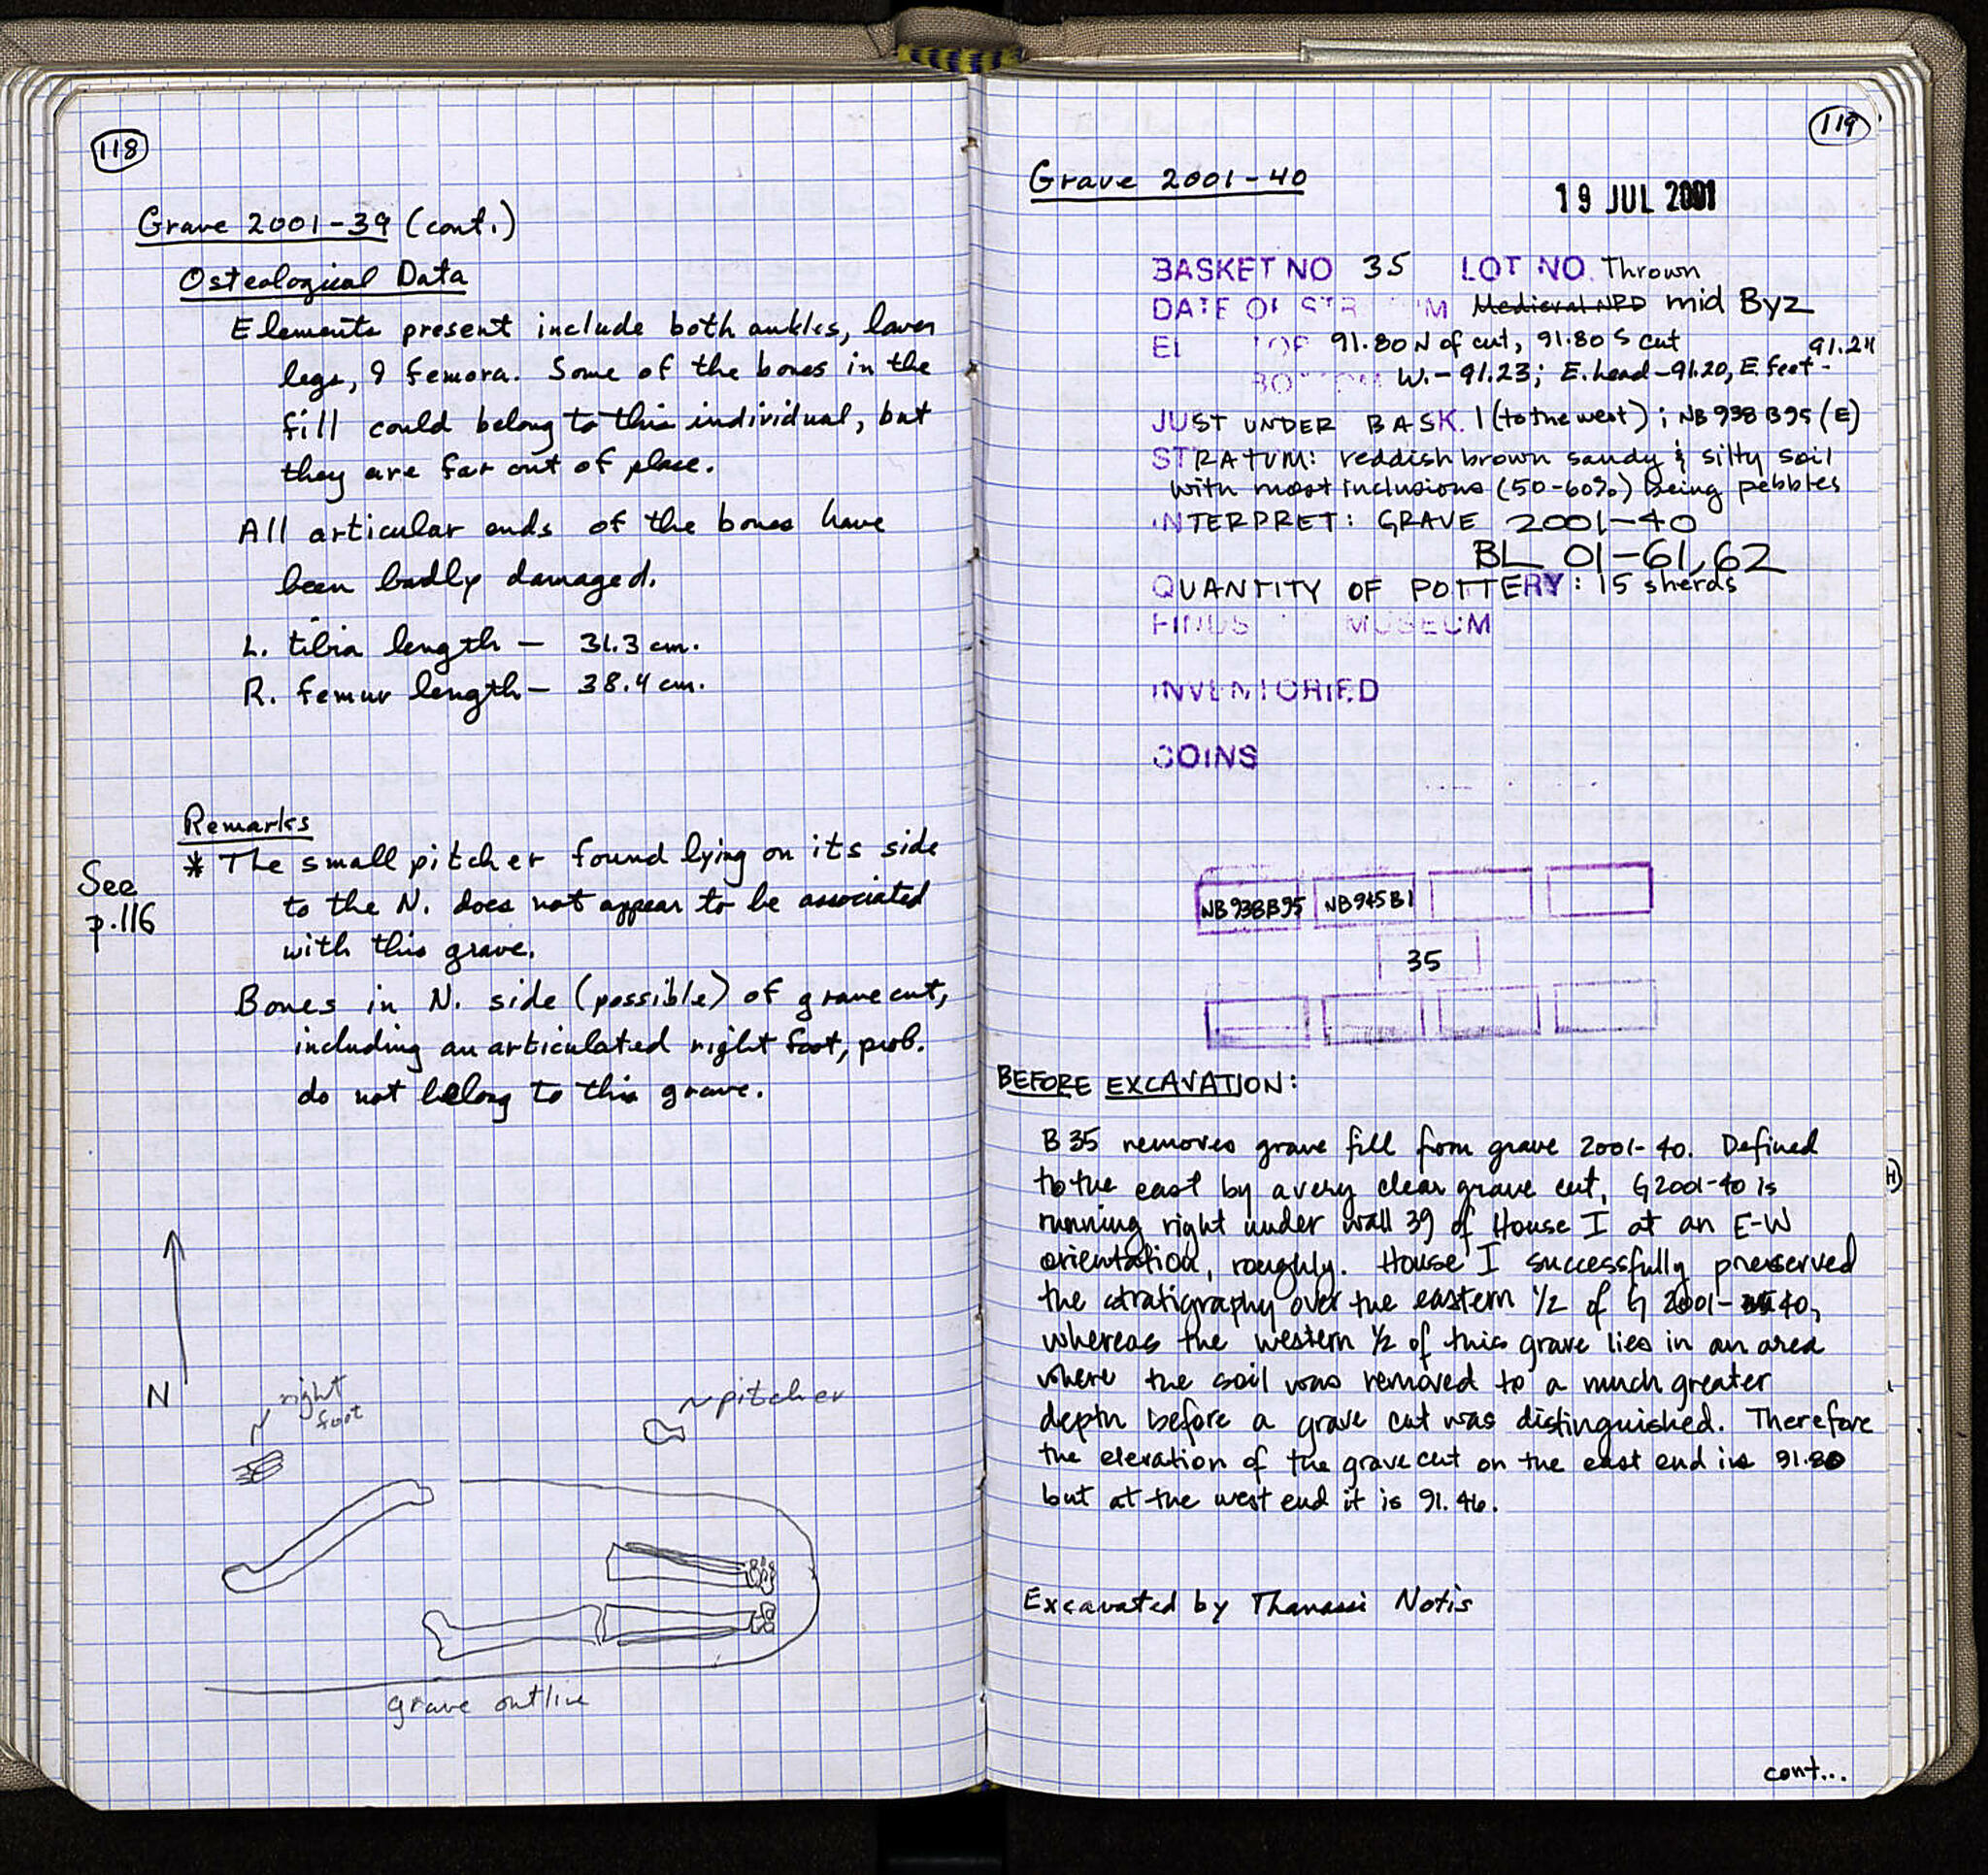 118
Grave 2001-39 (cont.)
Osteological Data
Elements present include both ankles, lower
legs, & femora. Some of the bones in the
fill could belong to this individual, but
they are far out of place.
All articular ends of the bones have
been badly damaged.
L. tibia length — 31.3 cm.
R. femur length — 38.4 cm.
Remarks
See
p.116
* The small pitcher found lying on its side
to the N. does not appear to be associated
with this grave.
Bones in N. side (possible) of grave cut,
including an articulated right foot, prob.
do not belong to this grave.
N
right
foot
~pitcher
grave outline
119
Grave 2001-40
19 JUL 2001
BASKET NO 35 LOT NO. Thrown
DATE OF STRATUM Medieval NPD mid Byz
EL TOP 91.80 N of cut, 91.80 S cut
91.24
BOTTOM W. - 91.23; E. head - 91.20, E. feet -
JUST UNDER BASK. 1 (to the west); NB 938 B95 (E)
STRATUM: reddish brown sandy & silty soil
with most inclusions (50-60%) being pebbles
INTERPRET: GRAVE 2001-40
BL 01-61,62
QUANTITY OF POTTERY: 15 sherds
FINDS MUSEUM
INVENTORIED
COINS
NB938B95 NB945B1
35
BEFORE EXCAVATION:
B 35 removes grave fill from grave 2001-40. Defined
to the east by a very clear grave cut, G2001-40 is
running right under wall 39 of House I at an E-W
orientation, roughly. House I successfully preserved
the stratigraphy over the eastern ½ of G 2001-40,
whereas the western ½ of this grave lies in an area
where the soil was removed to a much greater
depth before a grave cut was distinguished. Therefore
the elevation of the grave cut on the east end is 91.80
but at the west end it is 91.46.
Excavated by Thanassi Notis
cont...